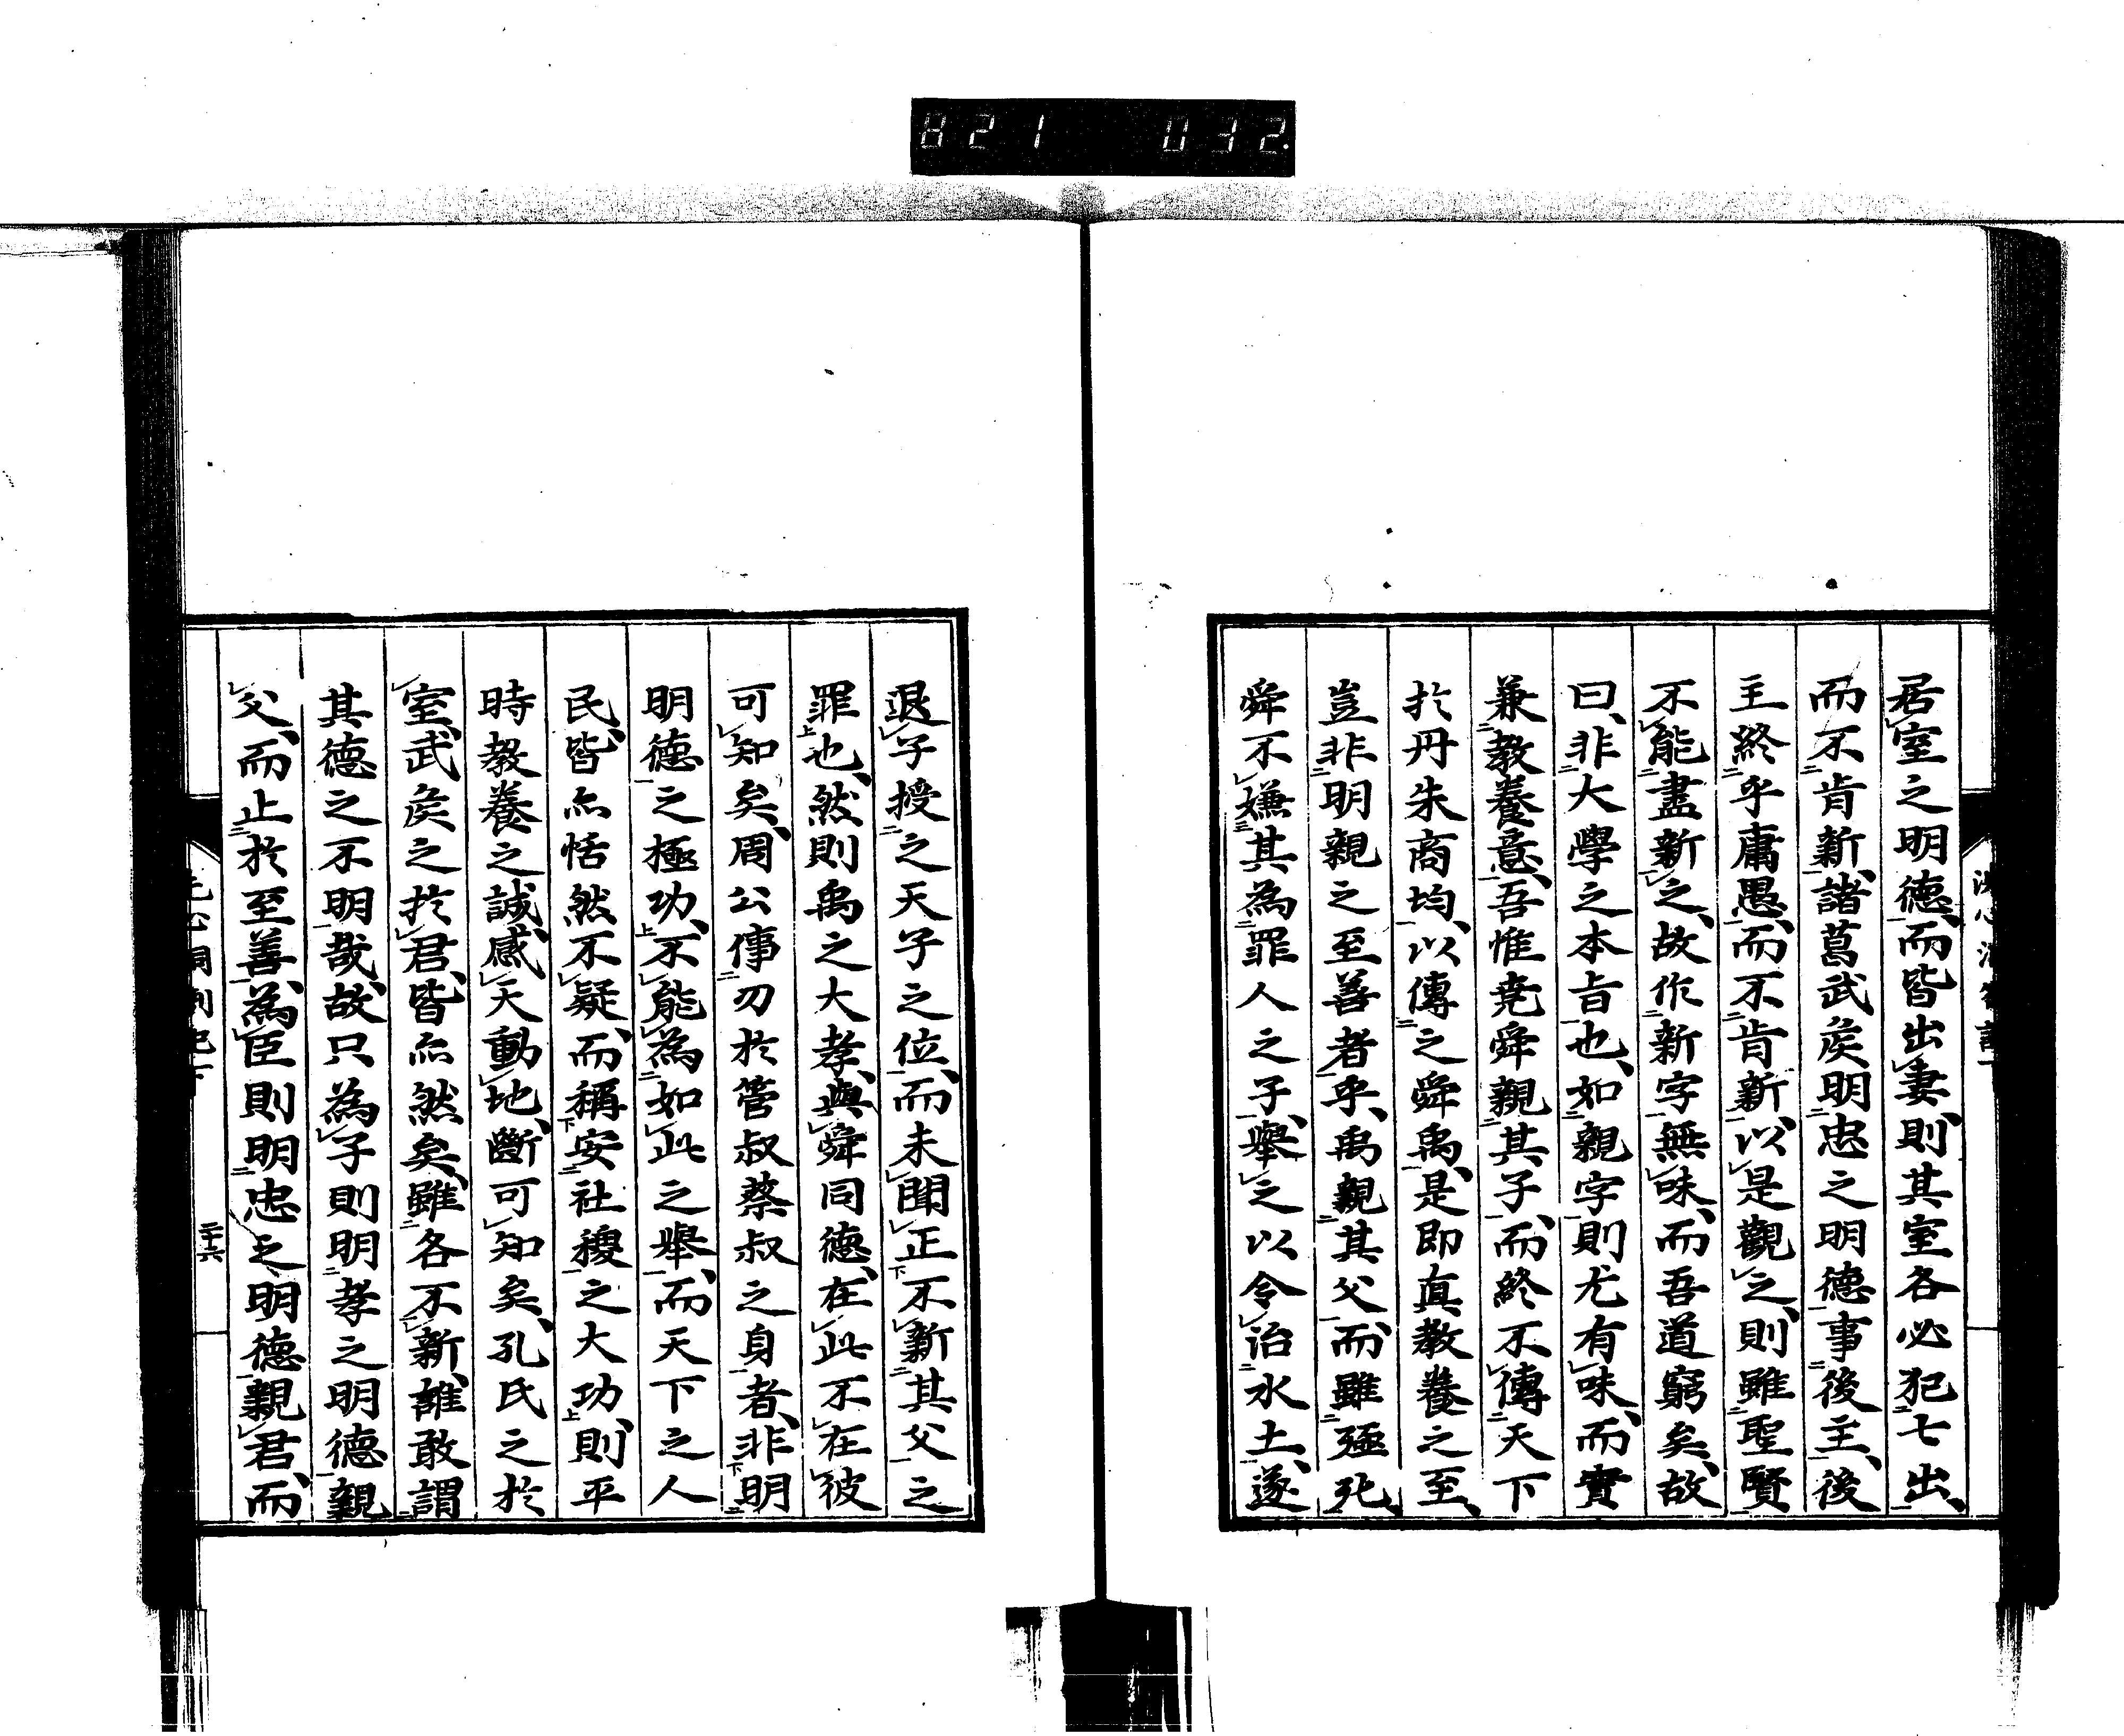 821 032
居室之明德、而皆出妻、則其室各必犯七出、
而不肯新、諸葛武矦明忠之明德事後主、後
主終乎庸愚、而不肯新、以是觀之、則雖聖賢
不能盡新之、故作新字無味、而吾道窮矣、故
曰、非大學之本旨也、如親字則尤有味、而實
兼教養意、吾惟堯舜親其子、而終不傳天下
於丹朱商均、以傳之舜禹、是即眞教養之至、
豈非明親之至善者乎、禹親其父、而雖殛死、
舜不嫌其為罪人之子、舉之以令治水土、遂
退子授之天子之位、而未聞正不新其父之
罪也、然則禹之大孝、與舜同德、在此不在彼
可知矣、周公倳刃於管叔蔡叔之身者、非明
明德之極功、不能為如此之舉、而天下之人
民、皆亦恬然不疑、而稱安社稷之大功、則平
時教養之誠、感天動地、斷可知矣、孔氏之於
室、武矦之於君、皆亦然矣、雖各不新、誰敢謂
其德之不明哉、故只為子則明孝之明德親
父、而止於至善、為臣則明忠之明德親君、而
二十六